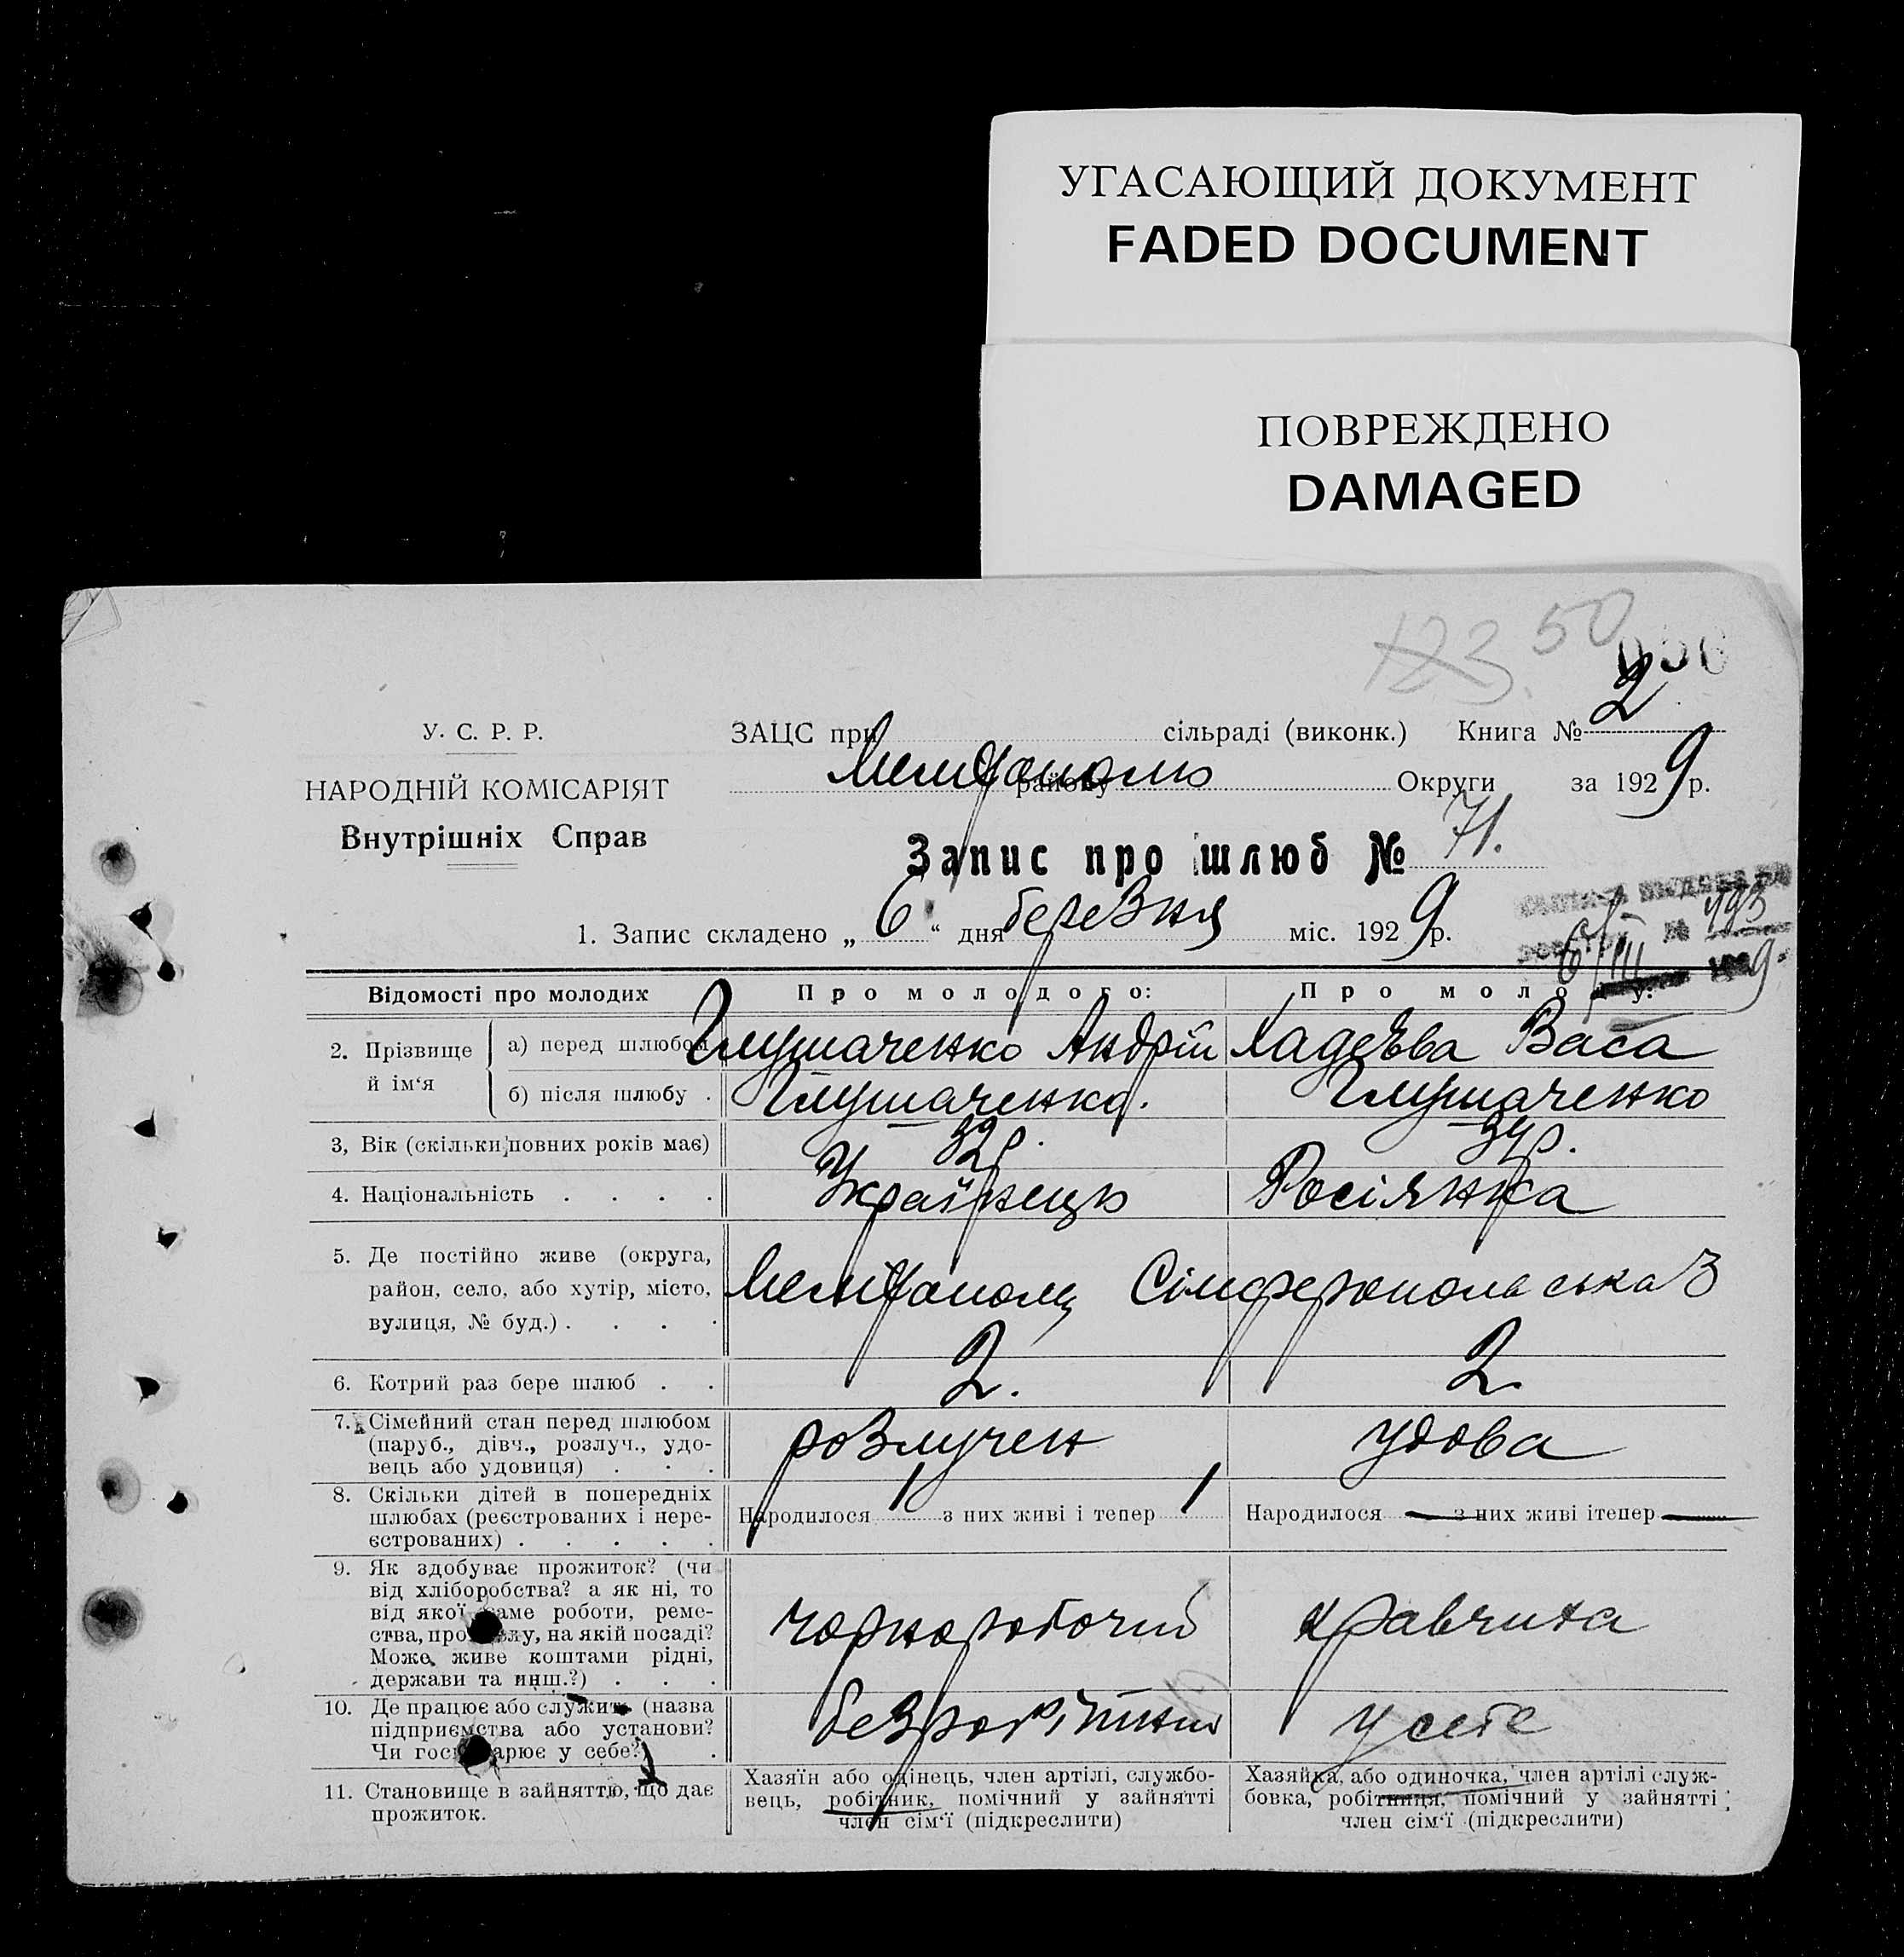 УГАСАЮЩИЙ ДОКУМЕНТ
FADED DOCUMENT
ПОВРЕЖДЕНО
DAMAGED
123 50
У. С. Р. Р.
НАРОДНІЙ КОМІСАРІЯТ
Внутрішніх Справ
ЗАЦС при сільраді (виконк.) Книга № 2
Мелітополь району Округи за 1929 р.
Запис про шлюб № 71.
1. Запис складено „ 6 “ дня березня міс. 1929 р.
193
6/III 1929.
Відомості про молодих
Про молодого:
Про молоду:
2. Прізвище й ім‘я
а) перед шлюбом
Глушаченко Андрій
Хадеєва Васа
б) після шлюбу .
Глушаченко.
Глушаченко
3, Вік (скільки повних років має)
32 р.
34 р.
4. Національність . . . .
Українець
Росіянка
5. Де постійно живе (округа,
район, село, або хутір, місто,
вулиця, № буд.) . . . .
Мелітополь Сімферопольська 3
6. Котрий раз бере шлюб . .
2.
2
7. Сімейний стан перед шлюбом
(паруб., дівч., розлуч., удо-
вець або удовиця) . . .
розлучен
удова
8. Скільки дітей в попередніх
шлюбах (реєстрованих і нере-
єстрованих) . . . . .
Народилося 1 з них живі і тепер 1
Народилося — з них живі ітепер —
9. Як здобуває прожиток? (чи
від хліборобства? а як ні, то
від якої саме роботи, реме-
ства, промислу, на якій посаді?
Може живе коштами рідні,
держави та инш.?) . . .
чорноробочий
кравчиха
10. Де працює або служить (назва
підприємства або установи?
Чи господарює у себе?) .
безробітний
у себе
11. Становище в зайняттю, що дає
прожиток.
Хазяїн або одінець, член артілі, службо-
вець, робітник, помічний у зайнятті
член сім‘ї (підкреслити)
Хазяйка, або одиночка, член артілі служ-
бовка, робітниця, помічний у зайнятті
член сім‘ї (підкреслити)